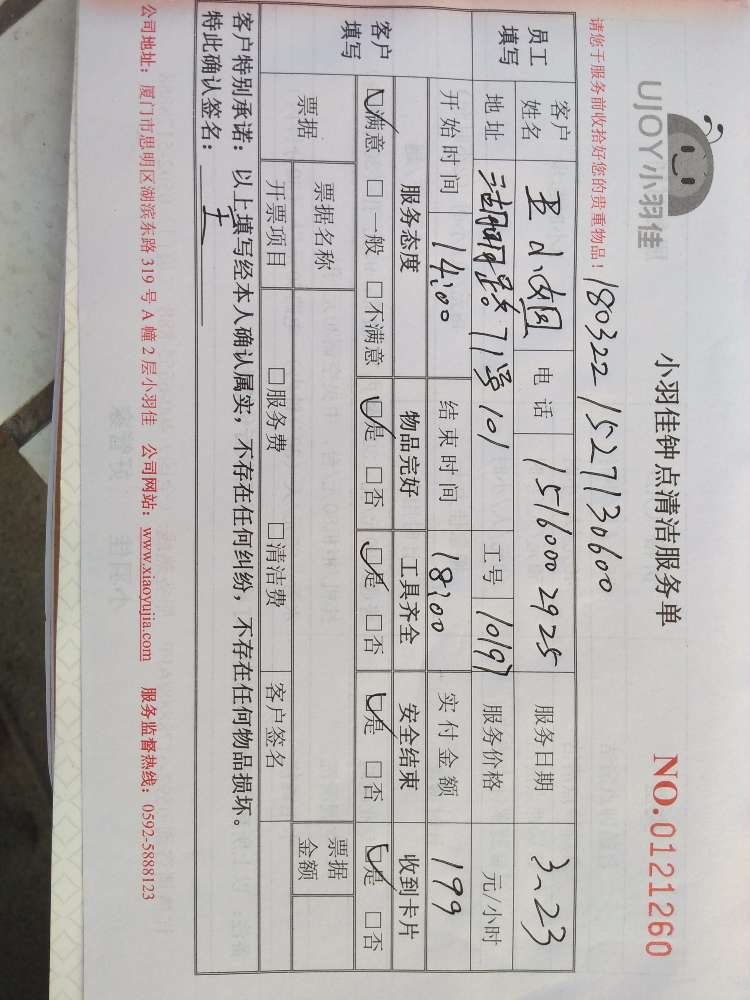 UJOY小羽佳
小羽佳钟点清洁服务单
NO.0121260
请您于服务前收拾好您的贵重物品！180322 1527130600
员工填写
客户姓名 小姐 电话 15160002925 服务日期 3、23
地址 71号101 工号 10197 服务价格 元/小时
开始时间 14:00 结束时间 18:00 实付金额 199
客户填写
服务态度 物品完好 工具齐全 安全结束 收到卡片
☑满意 □一般 □不满意 ☑是 □否 ☑是 □否 ☑是 □否 ☑是 □否
票据 票据名称 票据金额
开票项目 □服务费 □清洁费 客户签名
客户特别承诺：以上填写经本人确认属实，不存在任何纠纷，不存在任何物品损坏。
特此确认签名：
公司地址：厦门市思明区湖滨东路 319 号 A 幢 2 层小羽佳 公司网站：www.xiaoyujia.com 服务监督热线：0592-5888123